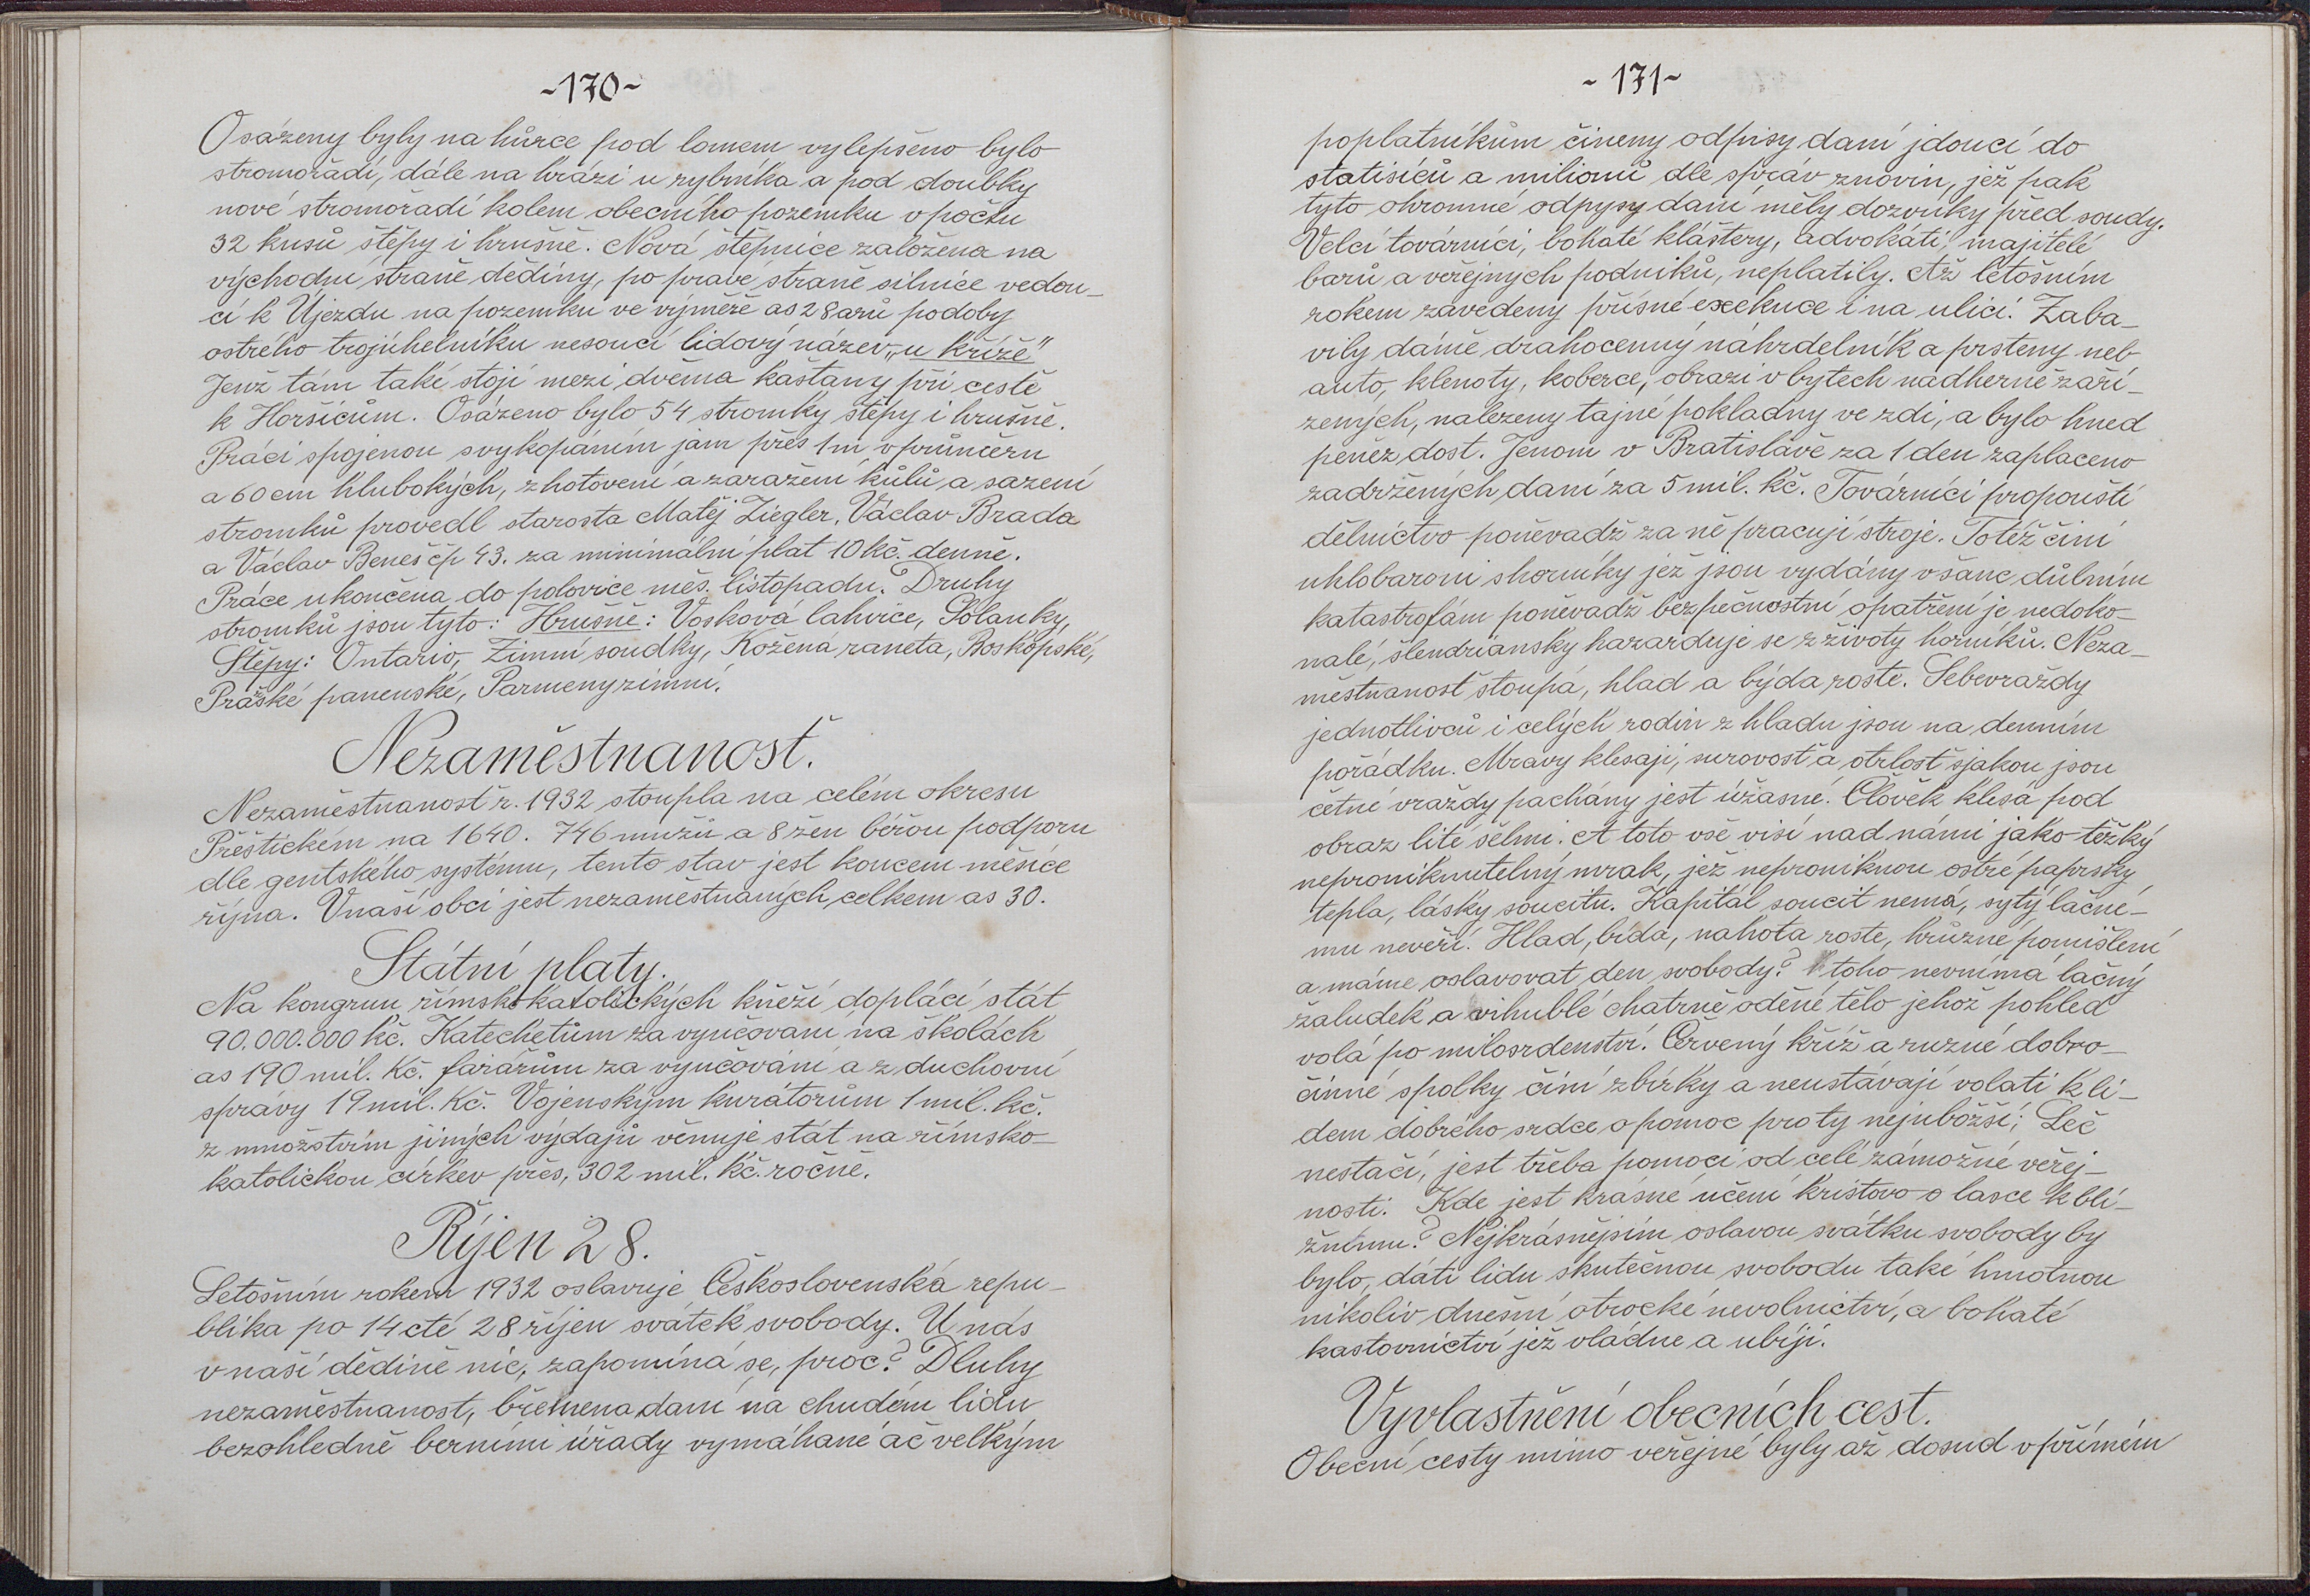 ~170~
Osázeny byly na hůrce pod lomem vylepšeno bylo
stromořadí, dále na hrázi u rybníka a pod doubky
nové stromořadí kolem obecního pozemku v počtu
32 kusů štěpy i hrušně. Nová štěpnice založena na
východní straně dědiny, po pravé straně silnice vedou-
cí k Újezdu na pozemku ve výměře as 28 arů podoby
ostrého trojúhelníku nesoucí lidový název „u Kříže"
Jenž tám také stojí mezi dvěma kaštany při cestě
k Horšicům. Osázeno bylo 54 stromky štěpy i hrušně.
Práci spojenou svykopáním jam přes 1m v průměru
a 60 cm hlubokých, zhotovení a zaražení kůlů a sazení
stromků provedl starosta Matěj Ziegler, Václav Brada
a Václav Beneš čp 43. za minimální plat 10 kč. denně.
Práce ukončena do polovice měs. listopadu. Druhy
stromků jsou tyto: Hrušně: Vosková lahvice, Solanky,
Štěpy: Ontario, Zimní soudky, Kožená raneta, Boskopské,
Pražské panenské, Parmeny zimní.
Nezaměstnanosť.
Nezaměstnanosť r. 1932 stoupla na celém okresu
Přeštickém na 1640. 746 mužů a 8 žen béřou podporu
dle gentského systému, tento stav jest koncem měsíce
října. V naší obci jest nezaměstnaných, celkem as 30.
Státní platy.
Na kongruu římskokatolických kněží doplácí stát
90.000.000 kč. Katechetům za vyučovaní na školách
as 190 mil. Kč. farářům za vyučování a z duchovní
správy 19 mil. Kč. Vojenským kurátorům 1 mil. kč.
z množstvím jiných výdajů věnuje stát na římsko-
katolickou církev přes, 302 mil. kč. ročně.
Říjen 28.
Letošním rokem 1932 oslavuje Československá repu-
blika po 14cté 28 říjen svátek svobody. U nás
v naší dědině nic, zapomíná se, proč? Dluhy
nezaměstnanost, břemena daní na chudém lidu
bezohledně berními úřady vymáhané ač velkým
~171~
poplatníkům činěny odpisy daní jdoucí do
statisíců a milionů dle zpráv znovin, jež pak
tyto ohromné odpysy daní měly dozvuky před soudy.
Velcí továrníci, bohaté kláštery, advokáti, majitelé
barů a veřejných podniků, neplatily. Až letošním
rokem zavedeny přísné exekuce i na ulici. Zaba-
vily dámě drahocenný náhrdelník a prsteny neb
auto, klenoty, koberce, obrazi v bytech nádherně zaří-
zených, nalezeny tajné pokladny ve zdi, a bylo hned
peněz dost. Jenom v Bratislavě za 1 den zaplaceno
zadržených daní za 5 mil. kč. Továrníci propouští
dělnictvo poněvadž za ně pracují stroje. Totéž činí
uhlobaroni shorníky jež jsou vydány všanc důlním
katastrofám poněvadž bezpečnostní opatření je nedoko-
nalé, šlendriánsky hazarduje se z životy horníků. Neza-
městnanosť stoupá, hlad a býda roste. Sebevraždy
jednotlivců i celých rodin z hladu jsou na denním
pořádku. Mravy klesají, surovosť a otrlosť sjakou jsou
četné vraždy pachány jest úžasné. Člověk klesá pod
obraz lité šelmi. A toto vše visí nad námi jako težký
neproniknutelný mrak, jež neproniknou ostré paprsky
tepla, lásky soucitu. Kapitál soucit nemá, sytý lačné-
mu nevěří. Hlad, bída, nahota roste, hrůzné pomišlení
a máme oslavovat den svobody? toho nevnímá lačný
žaludek a vihublé chatrně oděné tělo jehož pohled
volá po milosrdenství. Červený kříž a ruzné dobro-
činné spolky činí zbírky a neustávají volati k li-
dem dobrého srdce o pomoc pro ty nejubožší; Leč
nestačí, jest třeba pomoci od celé zámožné veřej-
nosti. Kde jest krásné učení kristovo o lasce k bli-
žnímu? Nejkrásnějsím oslavou svátku svobody by
bylo, dáti lidu skutečnou svobodu také hmotnou
nikoliv dnešní otrocké nevolnictví, a bohaté
kastovnictví jež vládne a ubíjí.
Vyvlastnění obecních cest.
Obecní cesty mimo veřejné byly až dosud v přímém